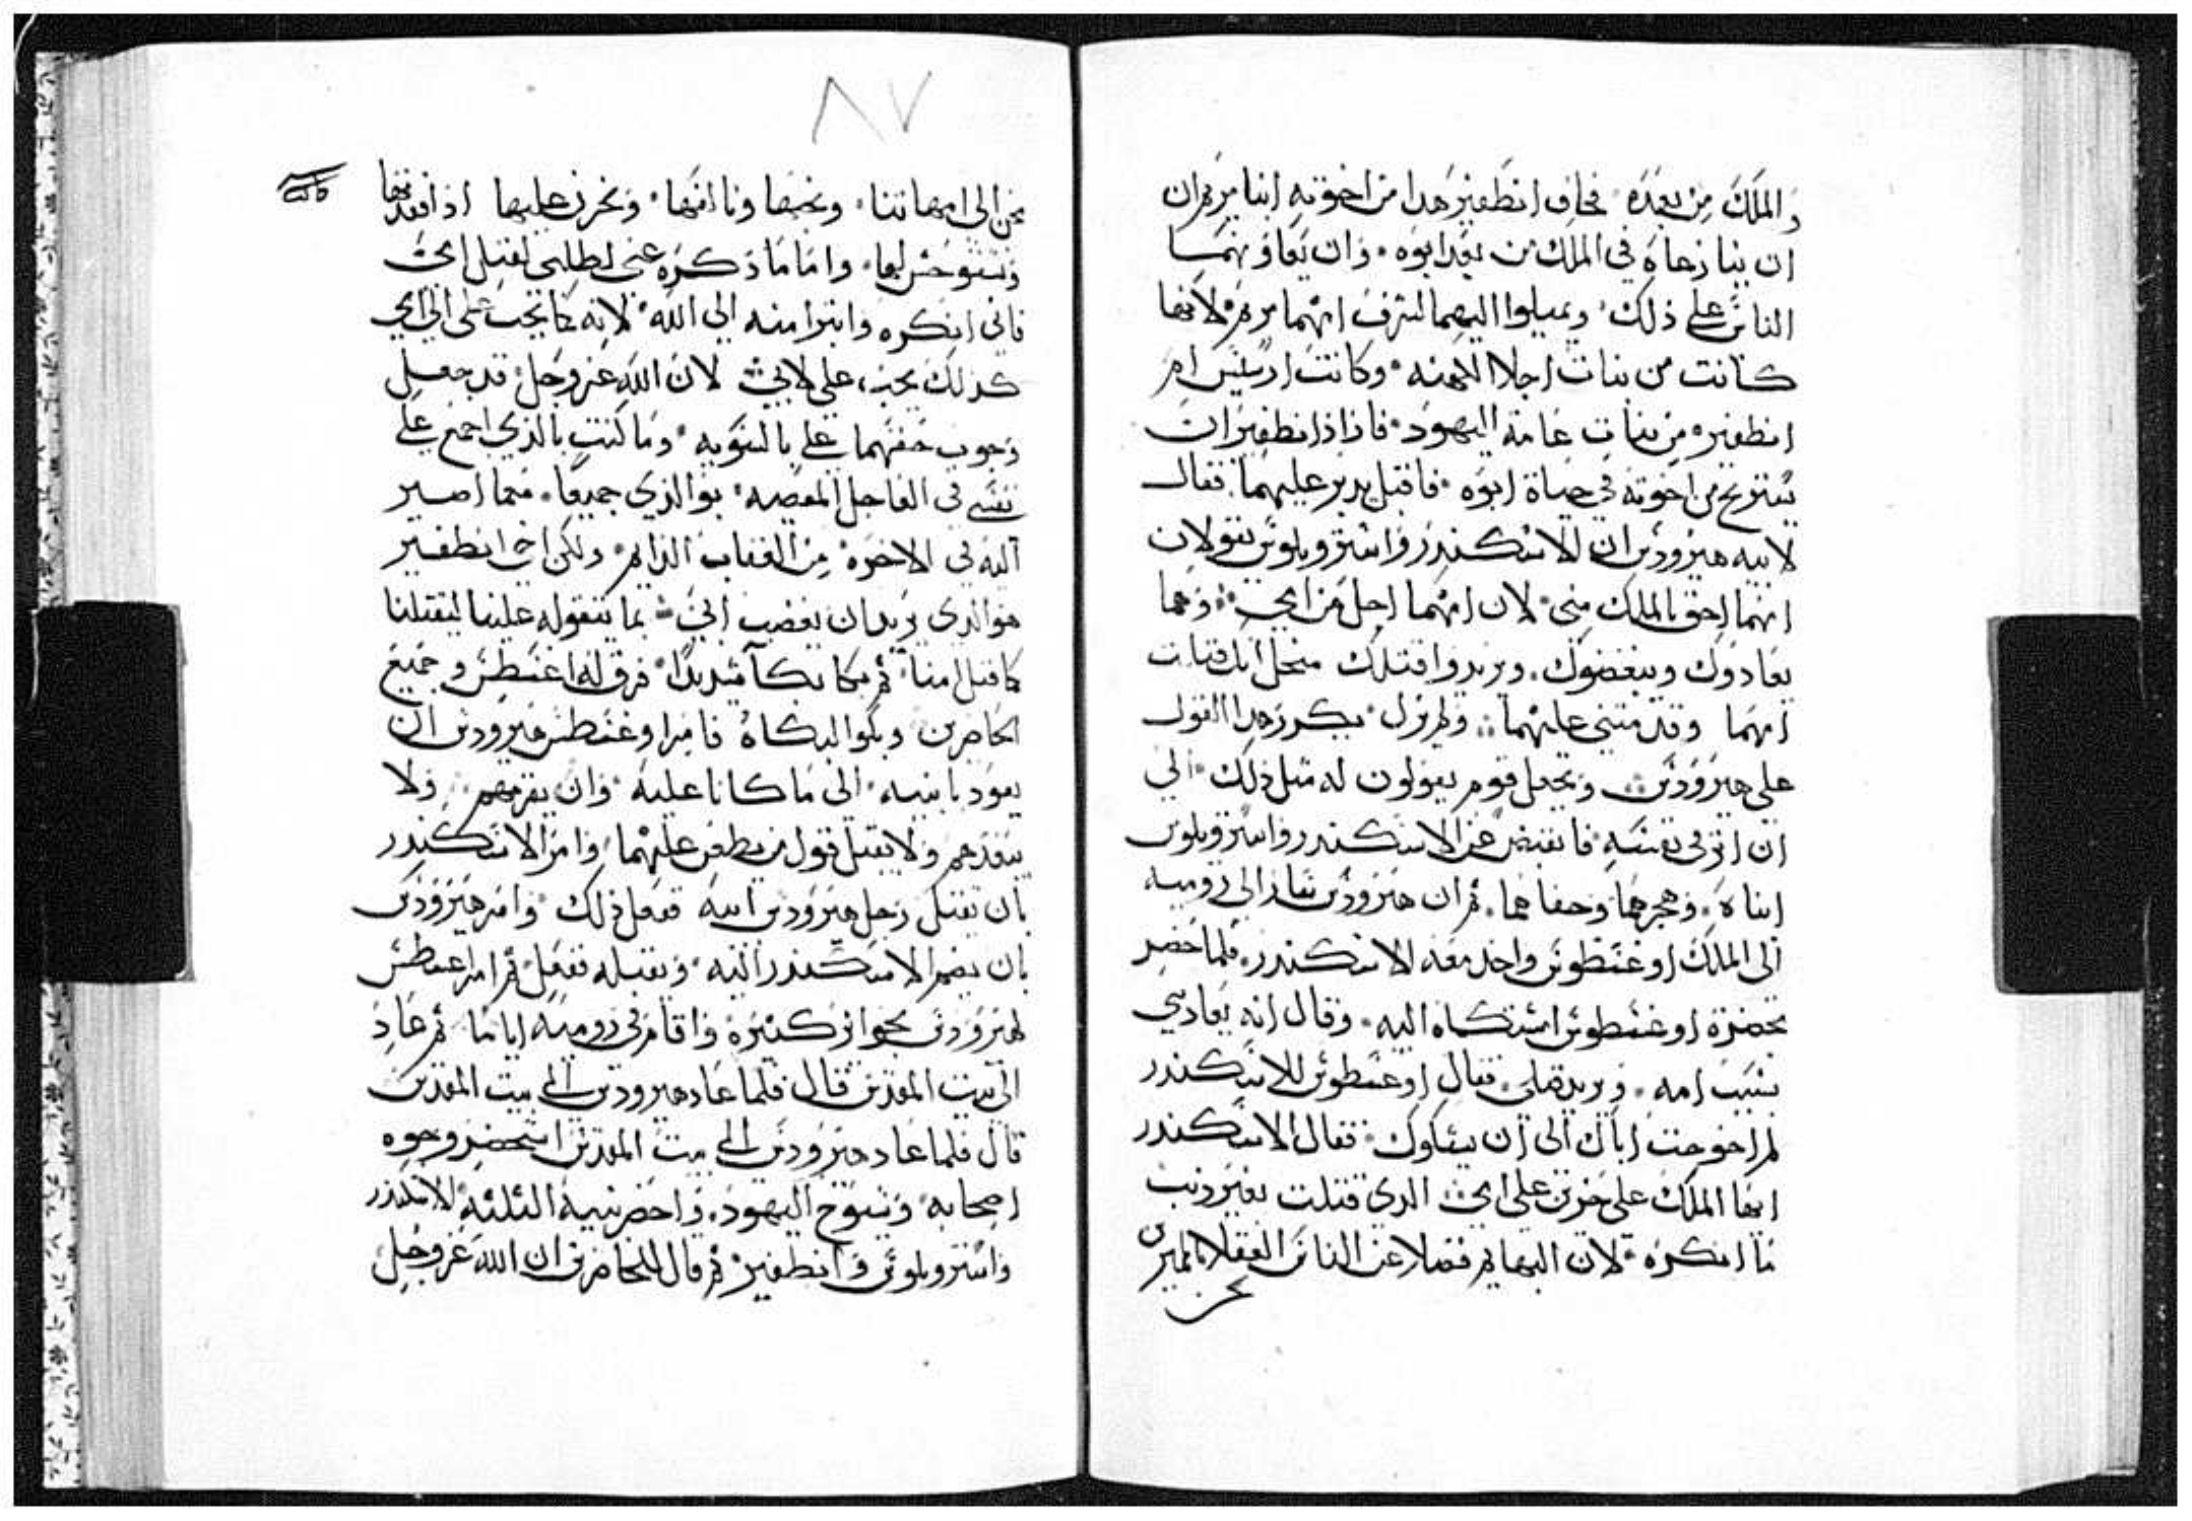 والملك من بعده فخاف انطفير هدا من اخوته ابنا مريم ان
ان ينازعاه في الملك من بعد ابوه وان يعاونهما
الناس علي ذلك ويميلوا اليهما لشرف امهما مريم لانها
كانت من بنات اجلا الكهنه وكانت ارسيس ام
انطفير من بنات عامة اليهود فاراد انطفير ان
يستريح من اخوته في حياة ابوه فاقبل يدبر عليهما فقال
لابيه هيرودس ان الاسكندر واسترو بلوس يقولان
انهما احق بالملك مني لان امهما اجل من امي وهما
يعادوك ويبغضوك ويريدوا قتلك من اجل انك قتلت
امهما وقد متنني عليهما ولم يزل يكرر هدا القول
علي هيرودس ويجعل قوم يقولون له مثل ذلك الي
ان اثر في نفسه فانقبض عن الاسكندر واسترو بلوس
ابناه وهجرهما وجفاهما ثم ان هيرودس سار الي روميه
الي الملك اوغسطوس واخد معه الاسكندر فلما حضر
بحضرة اوغسطوس اشتكاه اليه وقال انه يعاديني
بسبب امه ويريد قتلي فقال اوغسطوس للاسكندر
لم احوجت اباك الي ان يشكوك فقال الاسكندر
ايها الملك اما حزني علي امي الدي قتلت بغير دنب
ما انكره لان البهايم فضلا عن الناس العقلا المميزين
نحن
٨٧
تحن الي امهاتنا وتحبها وتالفها وتحزن عليها ادا فقدتها
وتستوحش لها واما ما ذكره عني لطلبي لقتل ابي
فاني انكره وابترا منه الي الله لانه كما يجب علي الي امي
كذلك يجب علي لابي لان الله عز وجل قد جعل
وجوب حقهما علي بالسويه وما كنت بالذي اجمع علي
نفسي في العاجل المعصيه بوالدي جميعا مما اصير
اليه في الاخره من العقاب الدايم ولكن اخي انطفير
هو الدي يريد ان يغضب ابي بما يتقوله علينا ليقتلنا
كما قتل امنا ثم بكا بكآ شديدا فرق له اغسطس وجميع
الحاضرين وبكوا لبكاه فامر اوغسطس هيرودس ان
يعود بابنيه الي ما كانا عليه وان يقربهم ولا
يبعدهم ولا يقبل قول من يطعن عليهما وامر الاسكندر
بان يقبل رجل هيرودس ابيه ففعل ذلك وامر هيرودس
بان يضم الاسكندر اليه ويقبله ففعل ثم امر اغسطس
لهيرودس بجوايز كثيرة واقام في روميه اياما ثم عاد
الي بيت المقدس قال فلما عاد هيرودس الي بيت المقدس
قال فلما عاد هيرودس الي بيت المقدس استحضر وجوه
اصحابه وشيوخ اليهود واحضر بنيه الثلثه الاسكندر
واسترو بلوس وانطفير ثم قال للحاضرين ان الله عز وجل